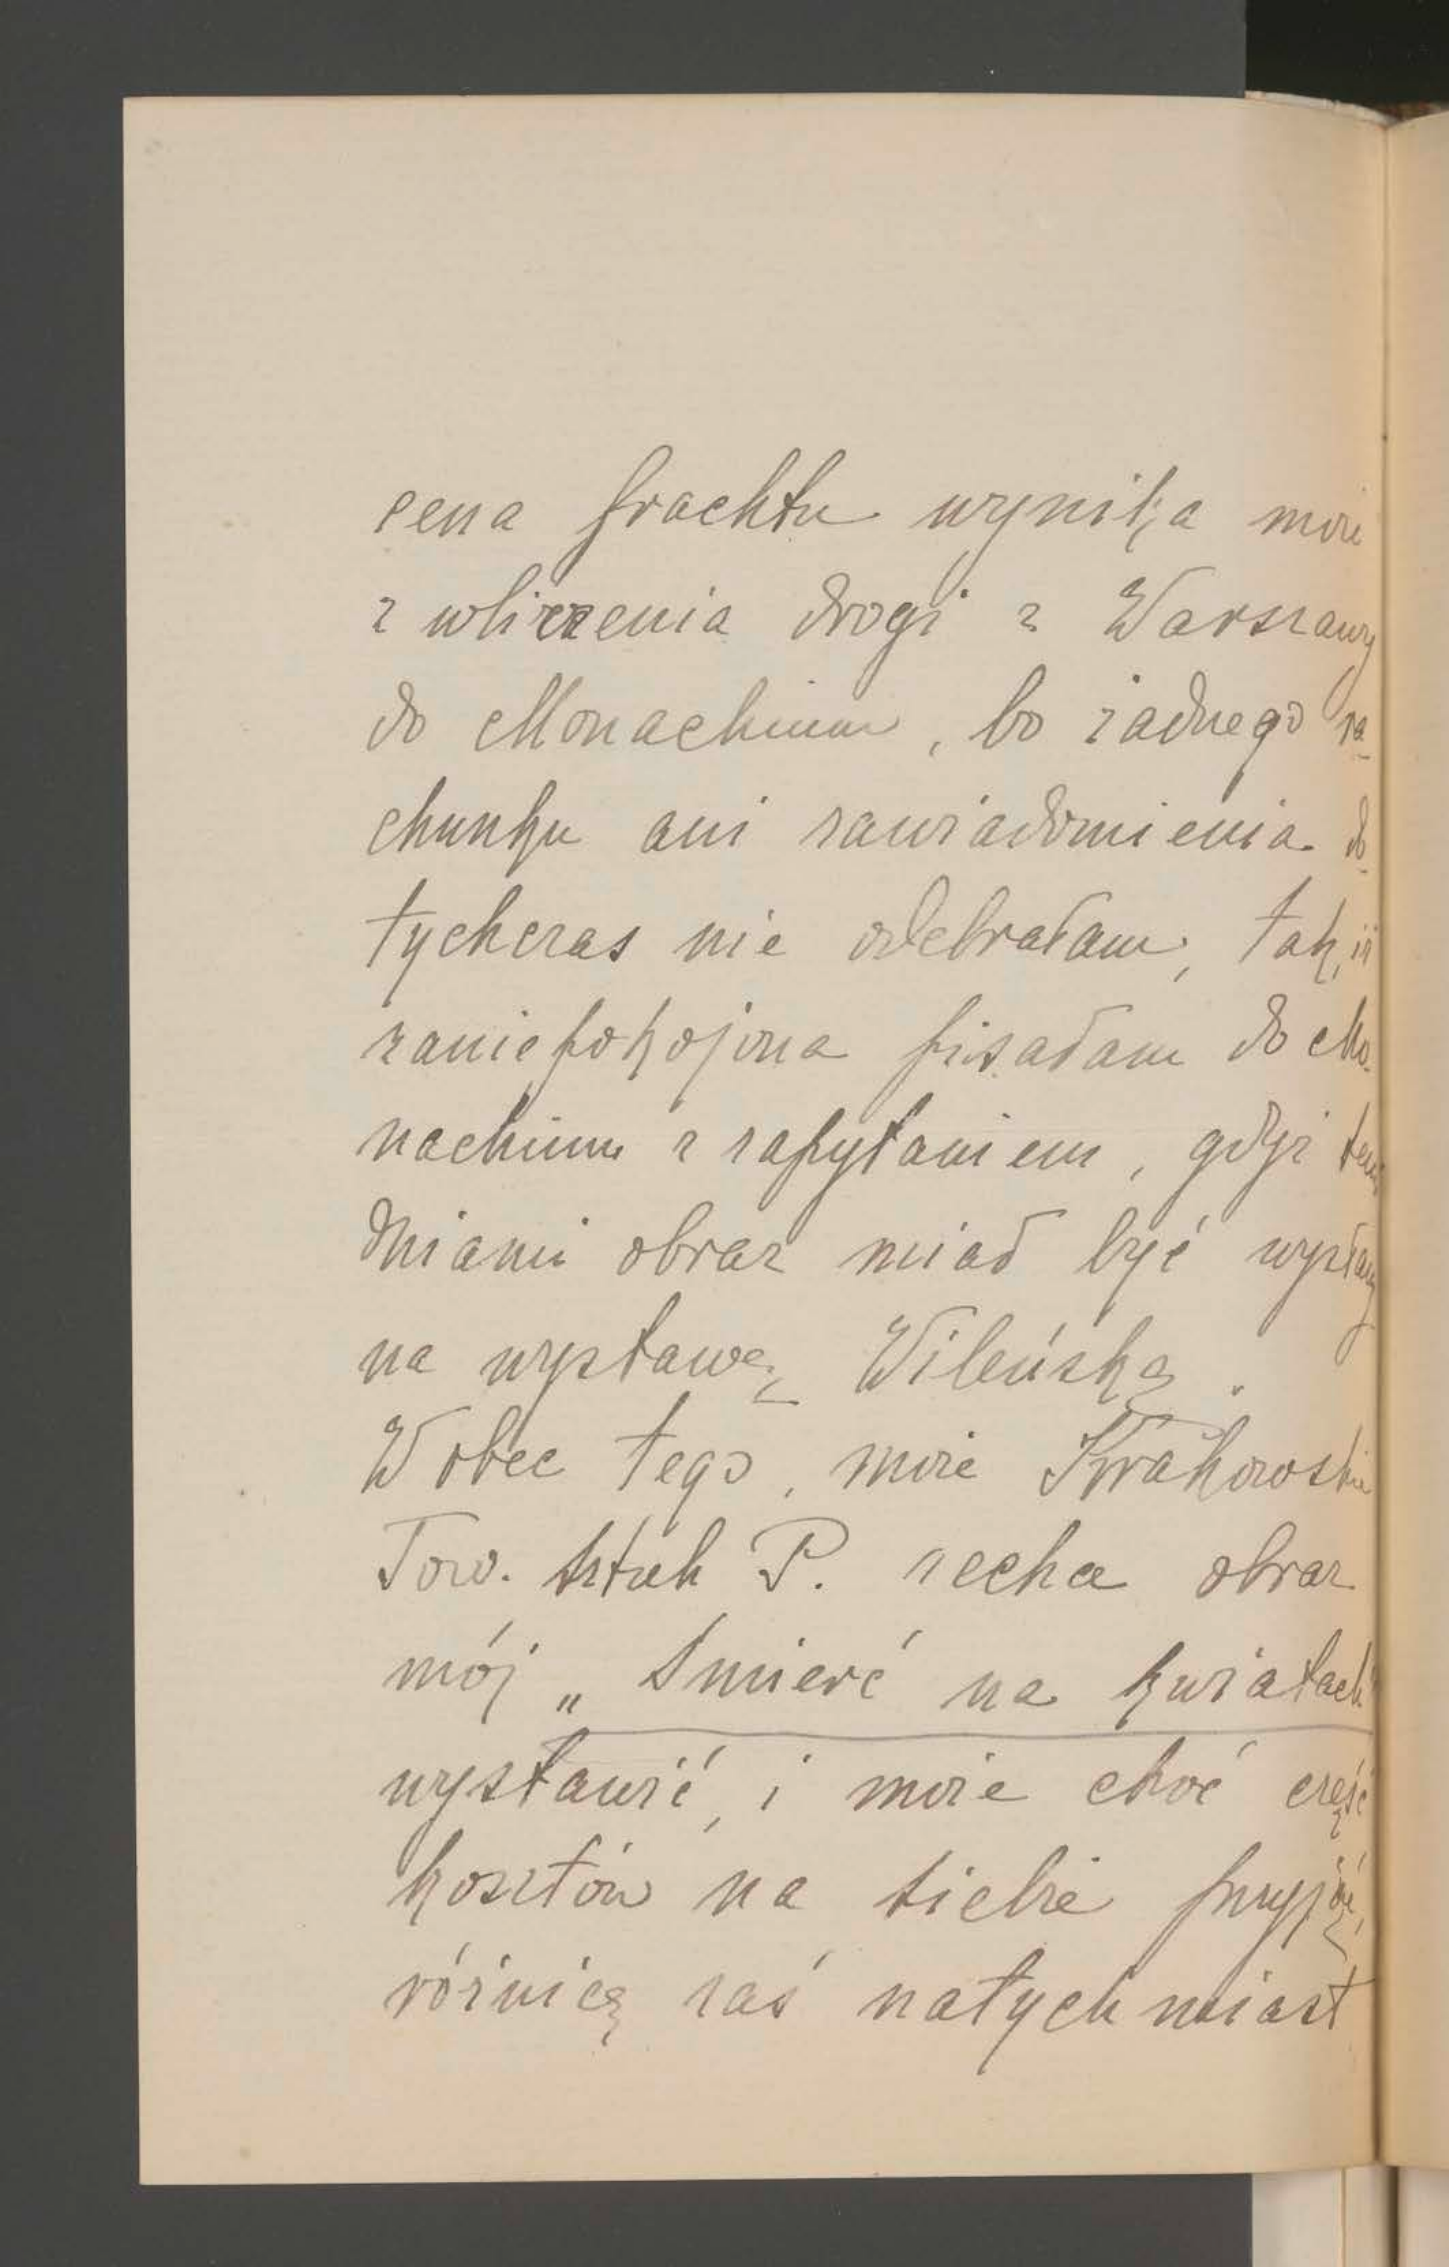 cena frachtu wynika może
z wliczenia drogi z Warszawy
do Monachium, bo żadnego ra-
chunku ani zawiadomienia do-
tychczas nie odebrałam, tak, iż
zaniepokojona pisałam do Mo-
nachium z zapytaniem, gdyż temi
dniami obraz miał być wysłany
na wystawę Wileńską.
Wobec tego, może Krakowskie
Tow. Sztuk P. zechce obraz
mój „Śmierć na kwiatach"
wystawić, i może choć część
kosztów na siebie przyjąć,
różnicę zaś natychmiast